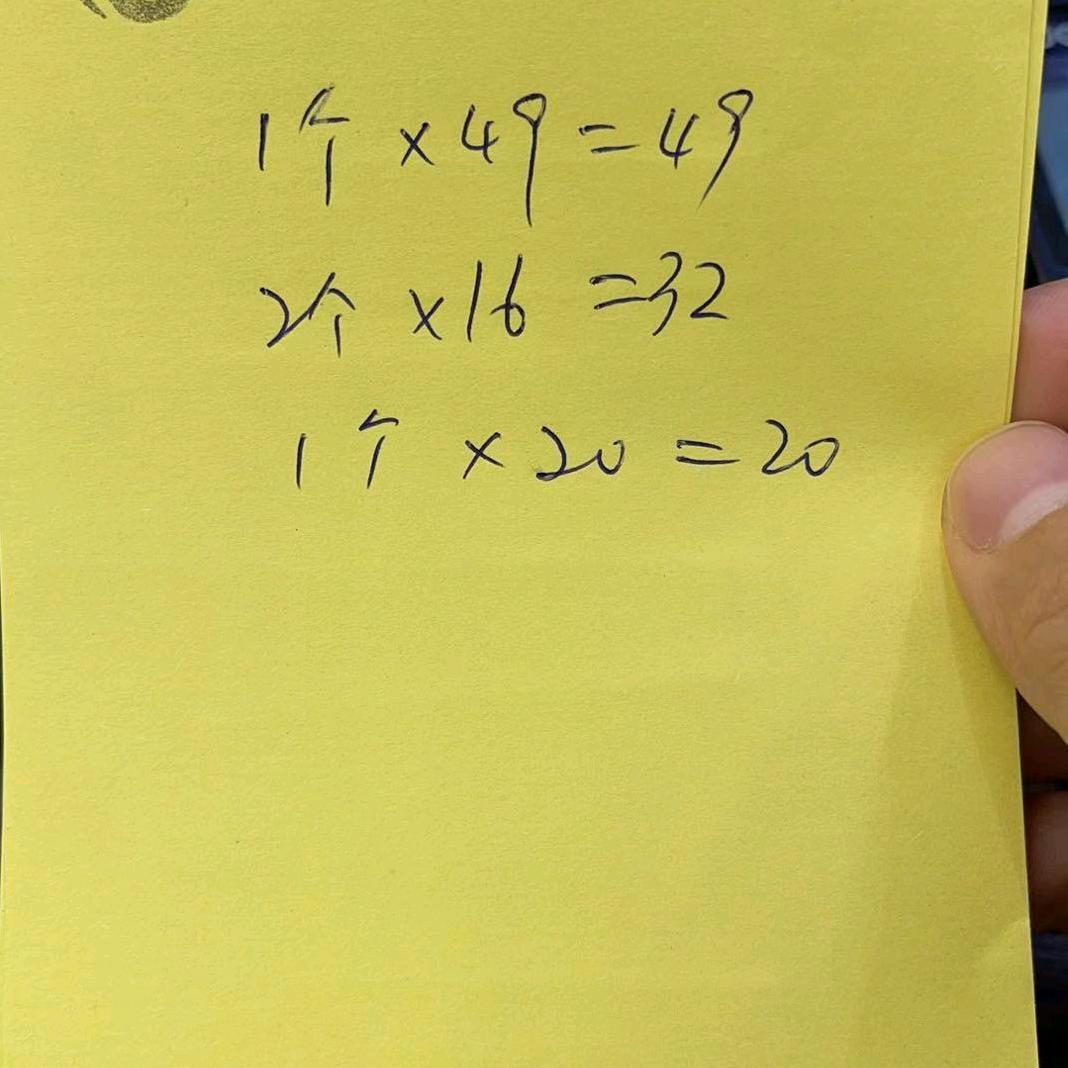 1个 ×49=49
2个 ×16=32
1个 ×20=20